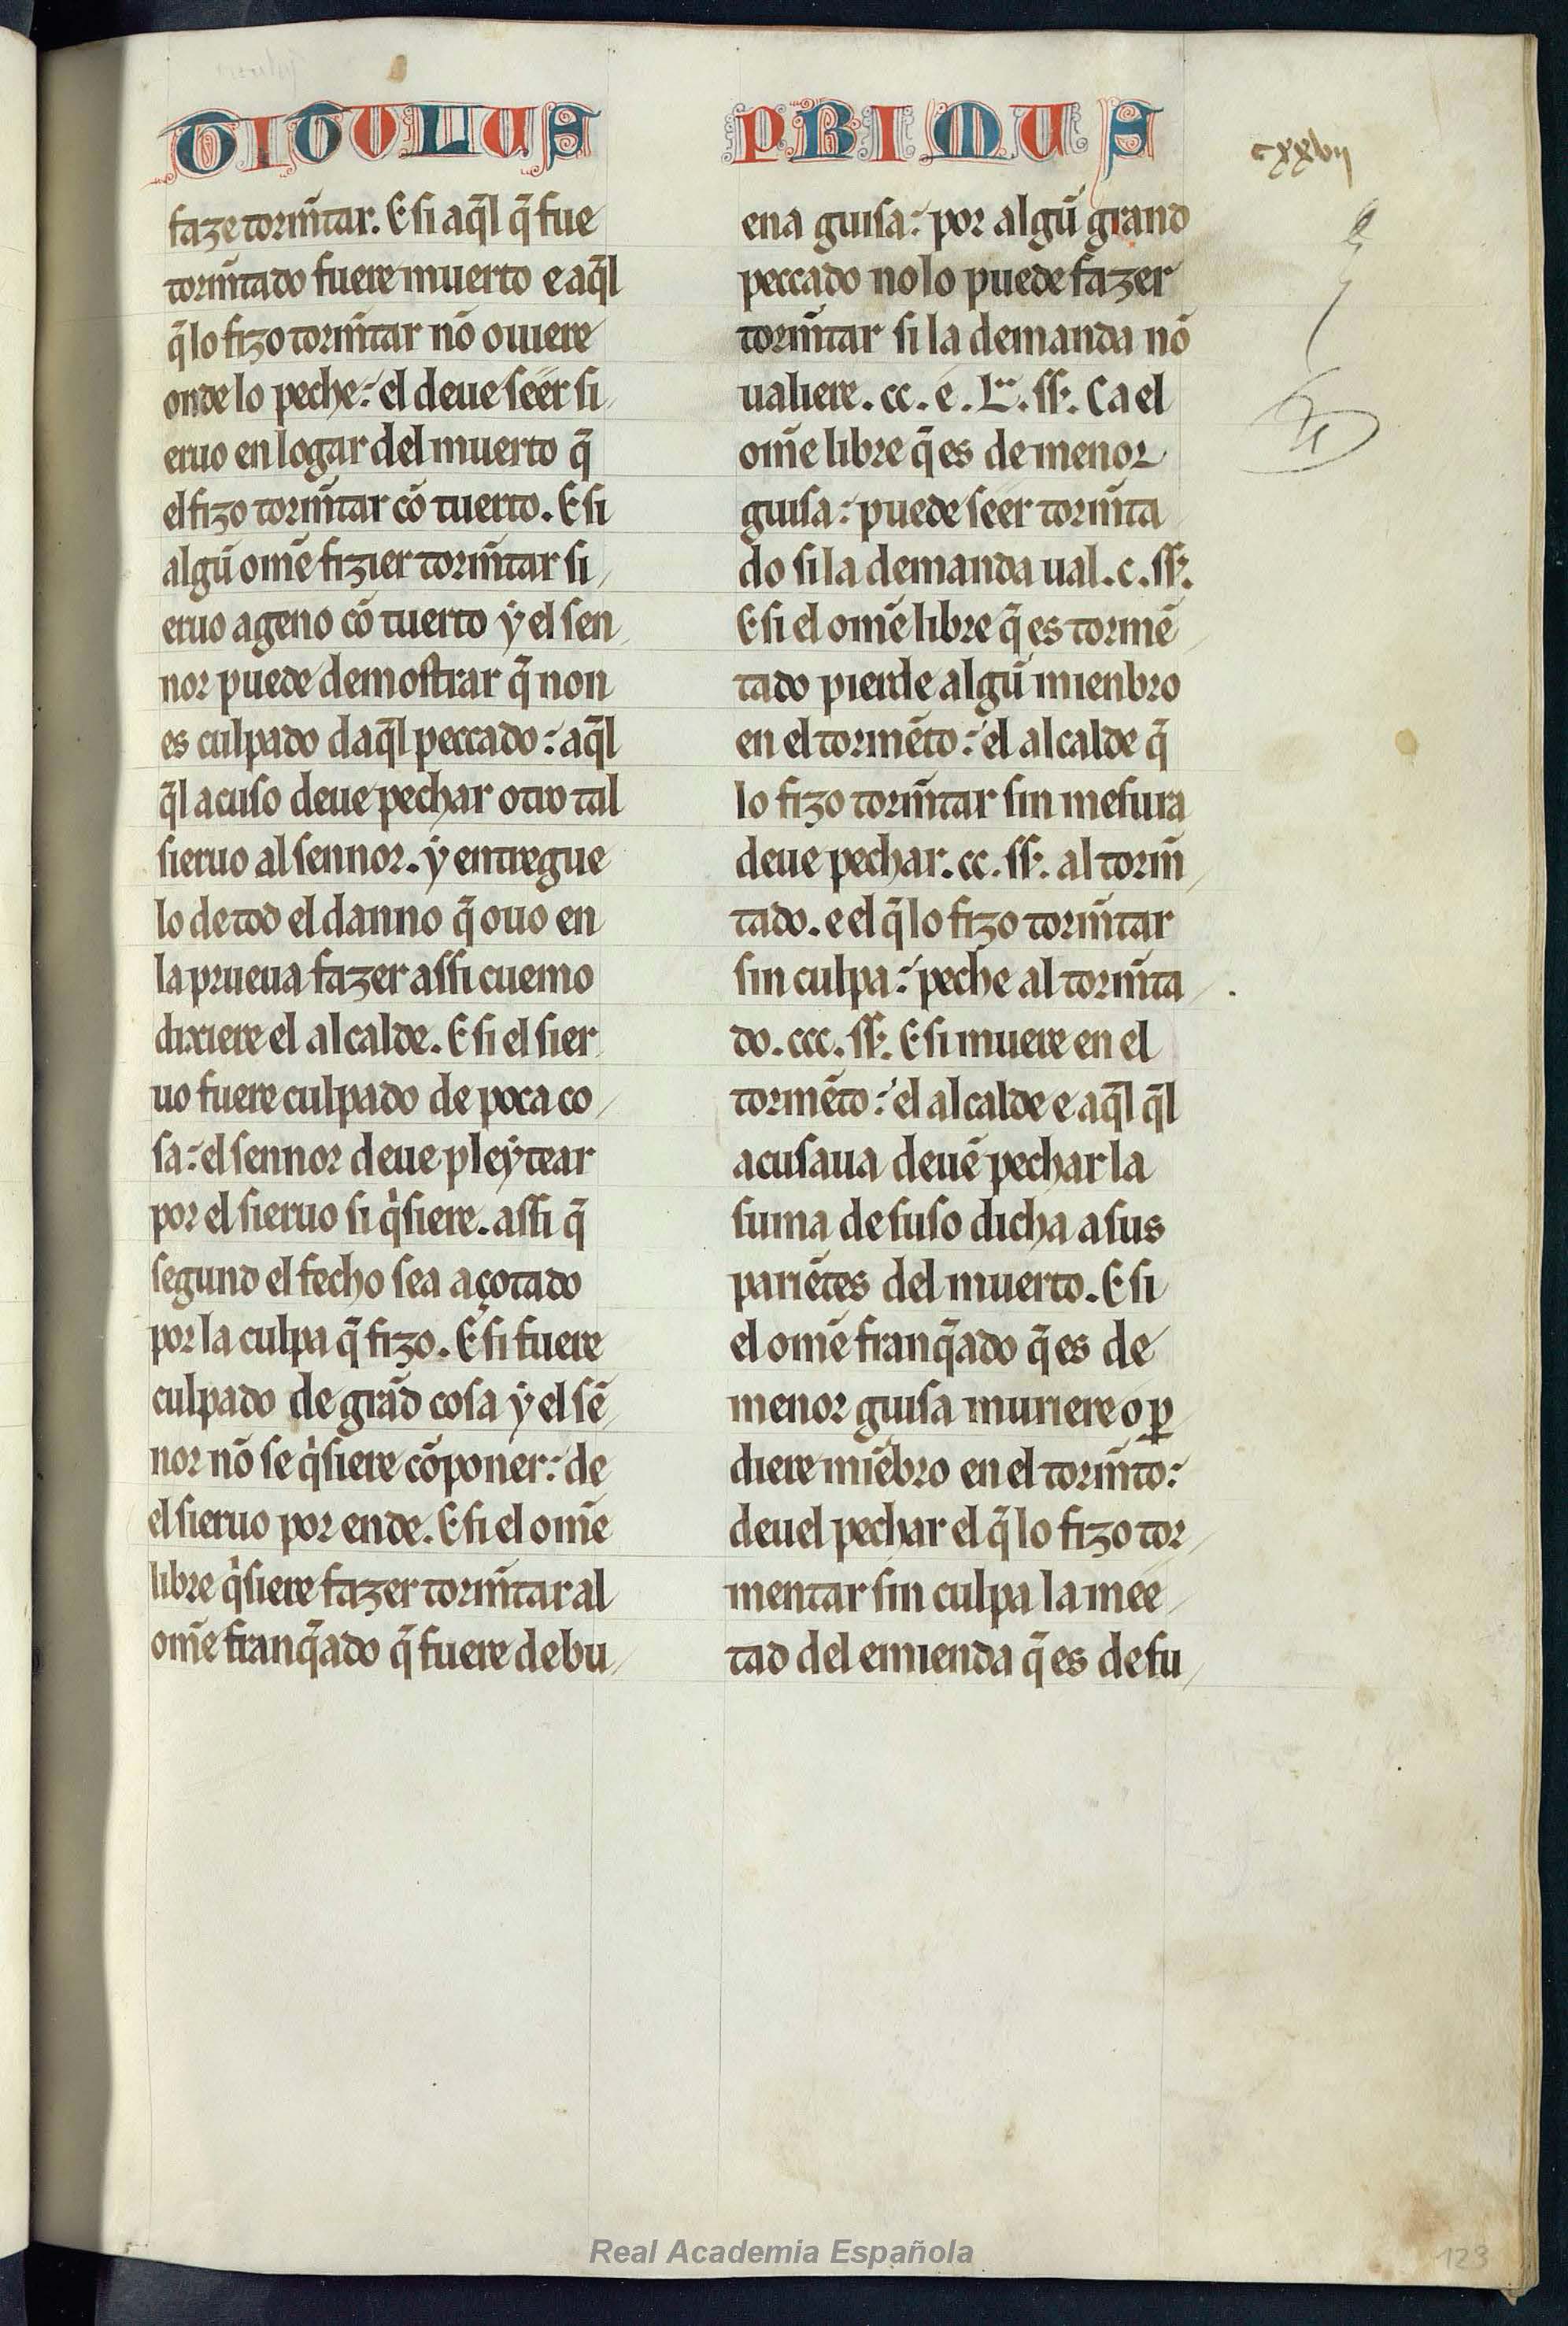 TITULUS PRIMUS
cxxvii
faze torm̄tar. E si aq̄l q̄ fue
torm̄tado fuere muerto e aq̄l
q̄ lo fizo torm̄tar nō ouiere
onde lo peche: el deue seer si
eruo en logar del muerto q̄
el fizo torm̄tar cō tuerto. E si
algū om̄e fizier torm̄tar si
eruo ageno cō tuerto ẏ el sen
nor puede demostrar q̄ non
es culpado daq̄l peccado: aq̄l
q̄l acuso deue pechar otro tal
sieruo al sennor. ẏ entregue
lo de tod el danno q̄ ouo en
la prueua fazer assi cuemo
dixiere el alcalde. E si el sier
uo fuere culpado de poca co
sa: el sennor deue pleẏtear
por el sieruo si q̇siere. assi q̄
segund el fecho sea açotado
por la culpa q̄ fizo. E si fuere
culpado de grād cosa ẏ el sē
nor nō se q̇siere cōponer: de
el sieruo por ende. E si el om̄e
libre q̇siere fazer torm̄tar al
om̄e franq̄ado q̄ fuere de bu
ena guisa: por algū grand
peccado no lo puede fazer
torm̄tar si la demanda nō
ualiere .cc. e .L. ss̄. Ca el
om̄e libre q̄ es de menor
guisa: puede seer torm̄ta
do si la demanda ual .c. ss̄.
E si el om̄e libre q̄ es tormē
tado pierde algū mienbro
en el tormēto: el alcalde q̄
lo fizo torm̄tar sin mesura
deue pechar .cc. ss̄. al torm̄
tado. e el q̄ lo fizo torm̄tar
sin culpa: peche al torm̄ta
do .ccc. ss̄. E si muere en el
tormēto: el alcalde e aq̄l q̄l
acusaua deuē pechar la
suma de suso dicha a sus
pariētes del muerto. E si
el om̄e franq̄ado q̄ es de
menor guisa muriere o ꝑ
diere miēbro en el torm̄to:
deuel pechar el q̄ lo fizo tor
mentar sin culpa la mee
tad del emienda q̄ es de su
Real Academia Española
123